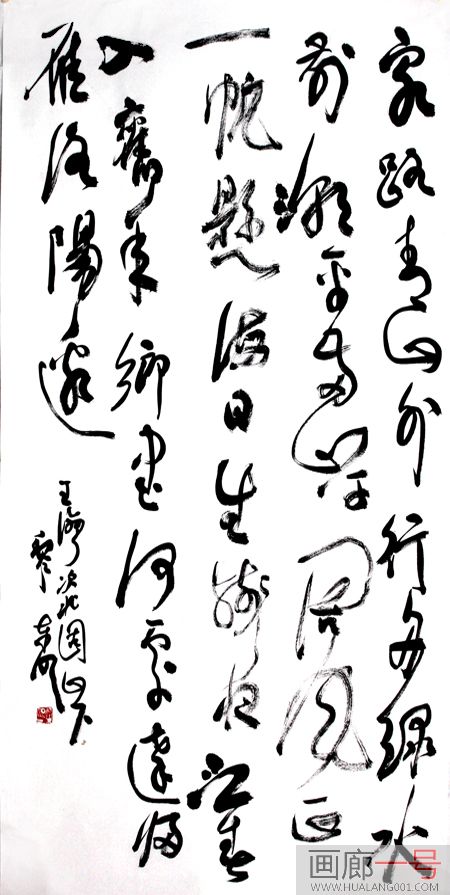 客路青山外行舟綠水
前潮平兩岸闊風正
一帆懸海日生殘夜江春
入舊年鄉書何處達歸
雁洛陽邊
王灣次北固山下
画廊一号
WWW.HUALANG001.COM